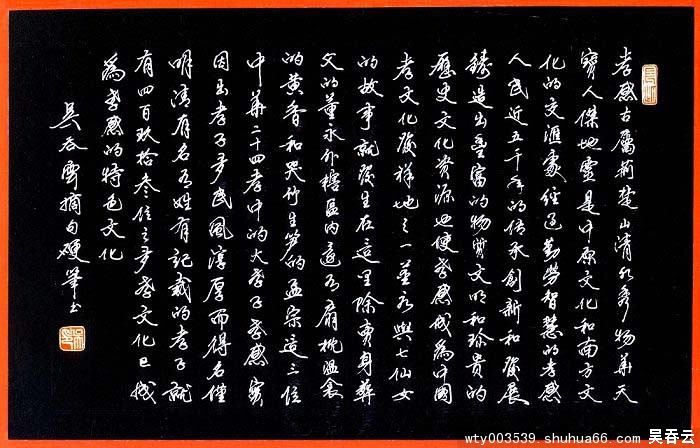 孝感古属荆楚山清水秀物华天
寳人傑地靈是中原文化和南方文
化的交滙處经过勤劳智慧的孝感
人民近五千年的传承创新和發展
鑄造出豐富的物質文明和珍贵的
歷史文化资源也使孝感成為中國
孝文化發祥地之一董永與七仙女
的故事就發生在這里除賣身葬
父的董永外辖區内還有扇枕温衾
的黄香和哭竹生笋的孟宗這三位
中華二十四孝中的大孝子孝感實
因出孝子多民風淳厚而得名僅
明清有名有姓有記载的孝子就
有四百玖拾叁位之多孝文化已成
為孝感的特色文化
吴吞雲摘句硬筆书
wty003539.shuhua66.com 吴吞云